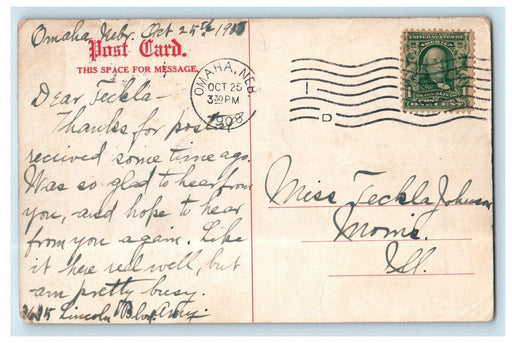 Omaha, Nebr. Oct 25th 1908
Post Card.
THIS SPACE FOR MESSAGE.
OMAHA, NEB.
OCT 25
3 30 PM
1908
I
D
UNITED STATES OF AMERICA
ONE CENT
Dear Teckla-
Thanks for postal
recieved some time ago.
Was so glad to hear from
you, and hope to hear
from you again. Like
it here real well, but
am pretty busy.
Lincoln Blvd. Amy.
Miss Teckla Johnson
Morris.
Ill.